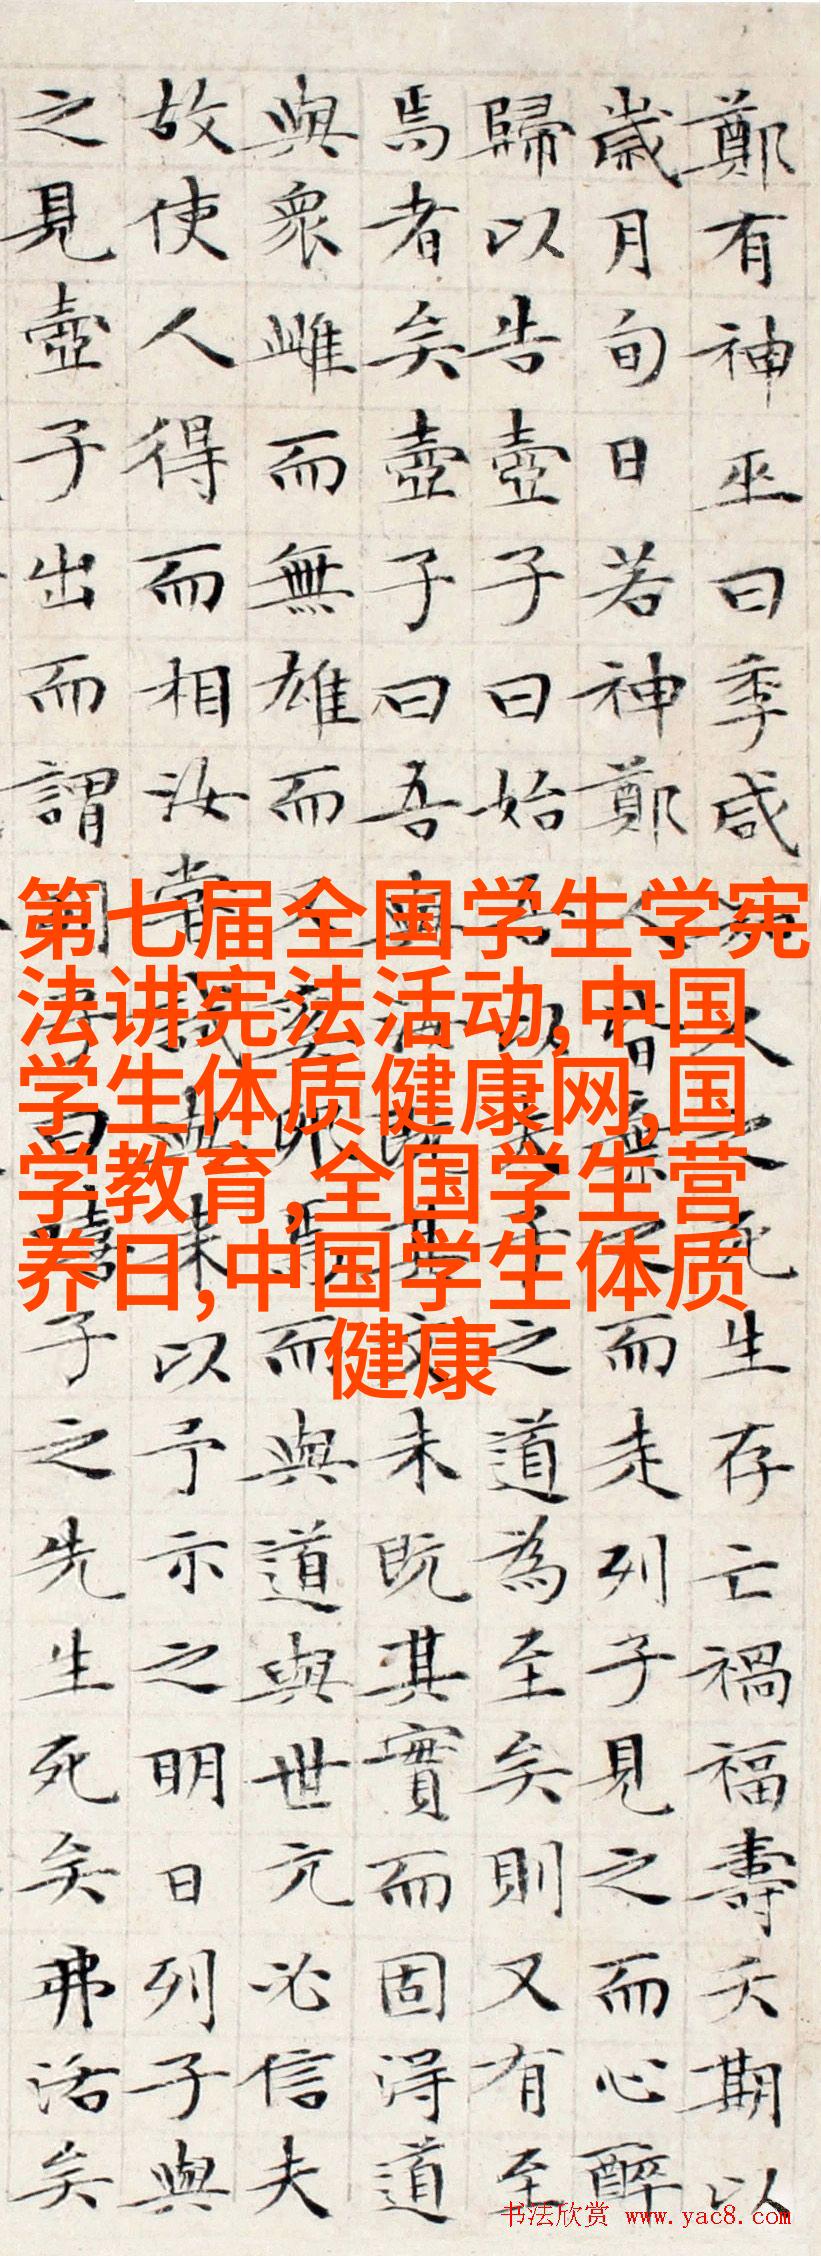 鄭有神巫曰季咸人之死生存亡禍福壽夭期以
歲月旬日若神鄭人皆棄而走列子見之而心醉
歸以告壺子曰始吾以夫子之道為至矣則又有至
焉者矣壺子曰吾與汝既其文未既其實而固得道
與衆雌而無雄而又奚卵焉而與道與世亢必信夫
故使人得而相汝嘗試與來以予示之明日列子與
之見壺子出而謂列子曰嘻子之先生死矣弗活矣
第七届全国学生学宪
法讲宪法活动,中国
学生体质健康网,国
学教育,全国学生营
养日,中国学生体质
健康
书法欣赏 www.yac8.com